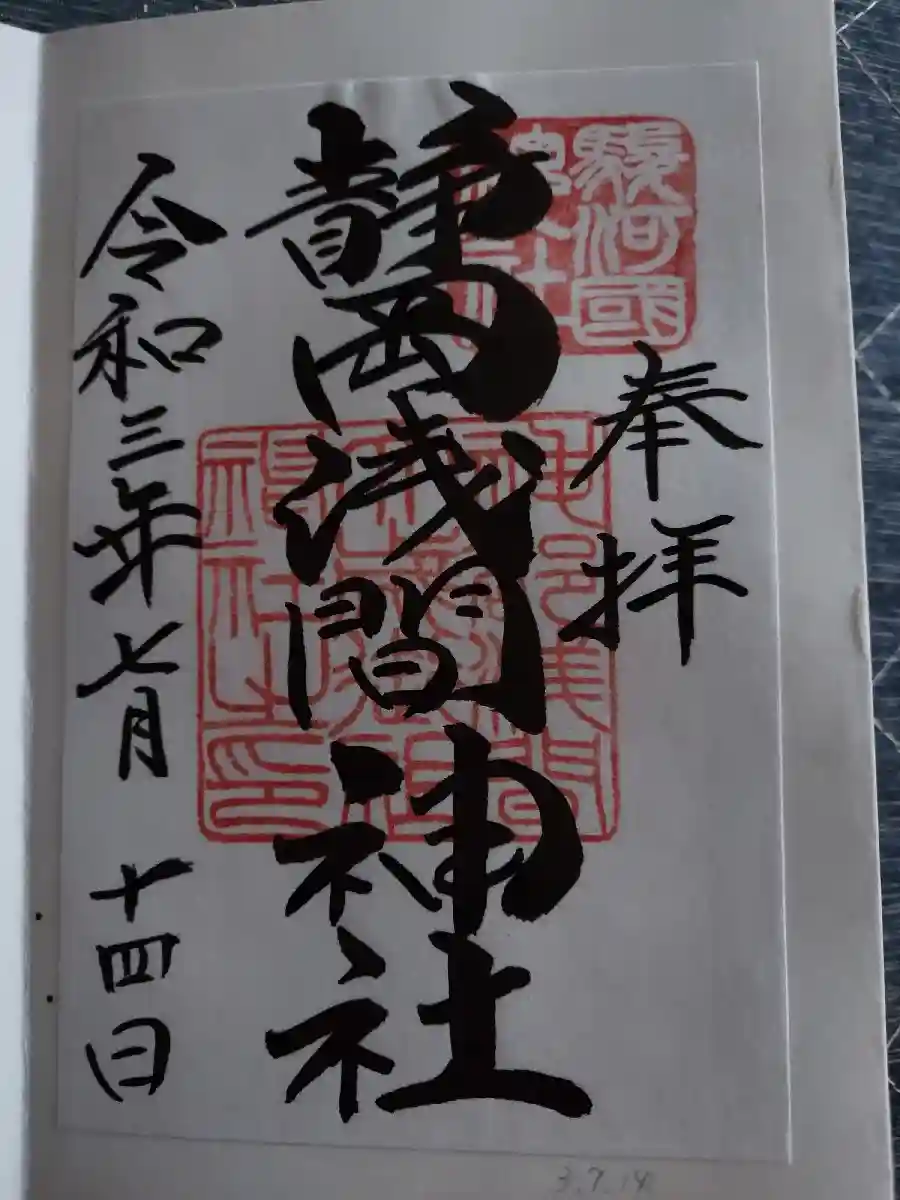 駿河國
奉拝
静岡浅間神社
神社之印
令和三年七月十四日
3.7.14